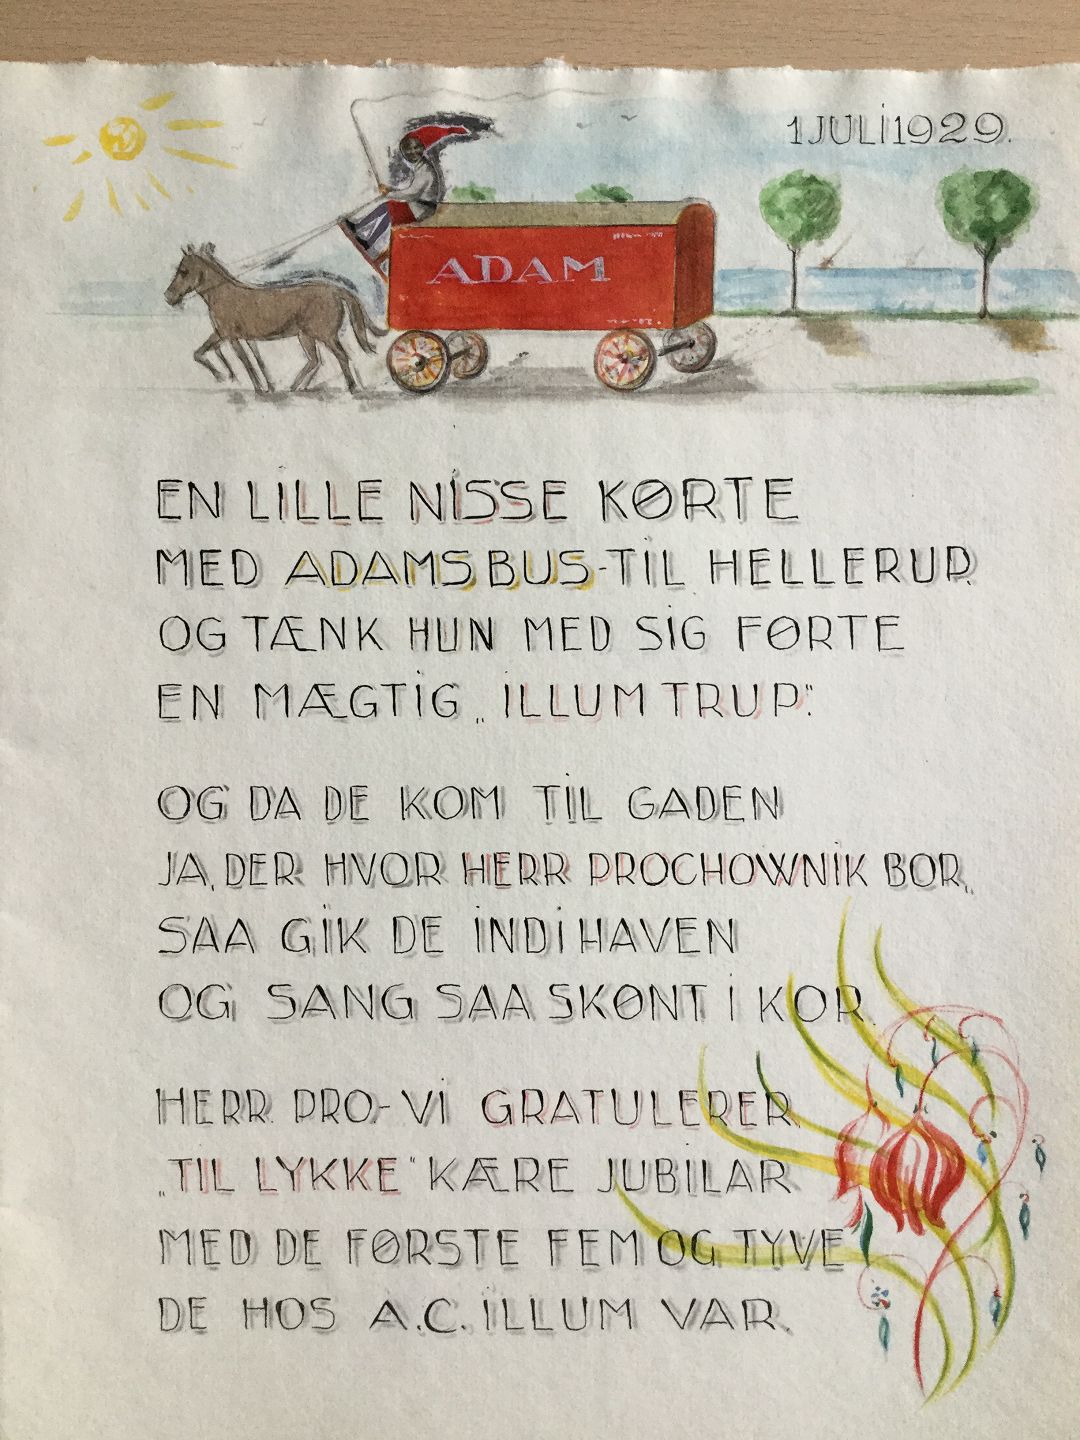 1 JULI 1929.
ADAM
EN LILLE NISSE KØRTE
MED ADAMSBUS-TIL HELLERUP.
OG TÆNK HUN MED SIG FØRTE
EN MÆGTIG „ILLUM TRUP."
OG DA DE KOM TIL GADEN
JA, DER HVOR HERR PROCHOWNIK BOR,
SAA GIK DE IND I HAVEN
OG SANG SAA SKØNT I KOR.
HERR PRO.- VI GRATULERER.
„TIL LYKKE" KÆRE JUBILAR
MED DE FØRSTE FEM OG TYVE
DE HOS A.C. ILLUM VAR.